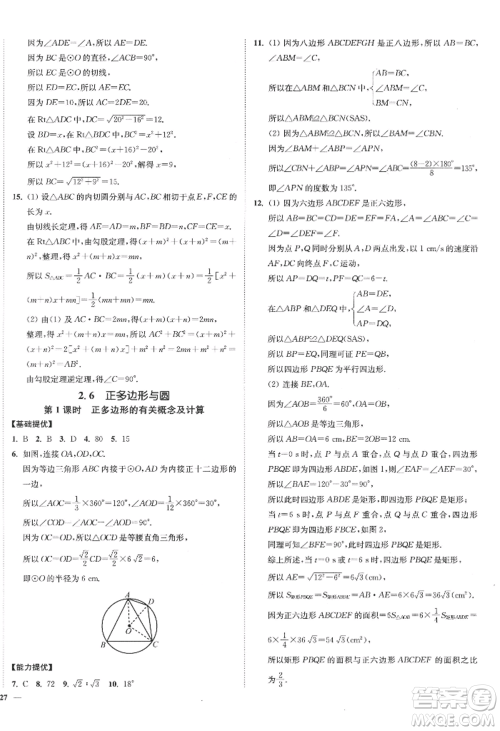 因为∠ADE=∠A,所以AE=DE.
因为BC是⊙O的直径,∠ACB=90°,
所以EC是⊙O的切线,
所以ED=EC,所以AE=EC.
因为DE=10,所以AC=20.
在Rt△ADC中,DC=√(20²-16²)=12.
设BD=x,
在Rt△BDC中,BC²=x²+12²,
在Rt△ABC中,BC²=(x+16)²-20²,
所以x²+12²=(x+16)²-20²,
解得x=9,
所以BC=√(12²+9²)=15.
15. (1)设△ABC的内切圆分别与AC,BC相切于点E,F,CE的
长为x.
由切线长定理,得AE=AD=m,BF=BD=n,CF=CE=x.
在Rt△ABC中,根据勾股定理,得(x+m)²+(x+n)²=(m+n)²,
整理,得x²+(m+n)x=mn,
所以S△ABC=1/2 AC·BC=1/2(x+m)(x+n)=1/2[x²+
(m+n)x+mn]=1/2(mn+mn)=mn.
(2)由(1)及AC·BC=2mn,得(x+m)(x+n)=2mn,
整理,得x²+(m+n)x=mn,
所以AC²+BC²=(x+m)²+(x+n)²=2[x²+(m+n)x]+
m²+n²=2mn+m²+n²=(m+n)²=AB².
由勾股定理的逆定理,得∠C=90°.
2.6 正多边形与圆
第1课时 正多边形的有关概念及计算
【基础提优】
1. B 2. B 3. D 4. 80 5. 15
6. 如图,连接OA,OD,OC.
因为等边三角形ABC内接于⊙O,AD为内接正十二边形的
一边,
所以∠AOC=1/3×360°=120°,∠AOD=1/12×360°=30°,
所以∠COD=∠AOC-∠AOD=90°.
因为OC=OD,所以OC=√2/2CD=√2/2×6√2=6(cm),
即⊙O的半径为6 cm.
A
D
O
B
C
【能力提优】
7. C 8. 72 9. √2:√3 10. 18°
27
11. (1)因为八边形ABCDEFGH是正八边形,
所以AB=BC=CD,∠ABM=∠BCN.
在△ABM和△BCN中,{AB=BC,
∠ABM=∠BCN,
BM=CN,
所以△ABM≌△BCN(SAS).
(2)因为△ABM≌△BCN,所以∠BAM=∠CBN.
因为∠BAM+∠ABP=∠APN,
所以∠CBN+∠ABP=∠APN=∠ABC=(8-2)×180°/8=
135°,即∠APN的度数为135°.
12. (1)因为六边形ABCDEF是正六边形,
所以AB=BC=CD=DE=EF=FA,∠A=∠ABC=∠C=
∠D=∠DEF=∠F.
因为点P,Q同时分别从A,D两点出发,以1 cm/s的速度沿
AF,DC向终点F,C运动,
所以AP=DQ=t,PF=QC=6-t.
在△ABP和△DEQ中,{AB=DE,
∠A=∠D,
AP=DQ,
所以△ABP≌△DEQ(SAS),
所以BP=EQ.同理可证PE=QB,
所以四边形PBQE是平行四边形.
(2)连接BE,OA,
则∠AOB=360°/6=60°.
因为OA=OB,
所以△AOB是等边三角形,
所以AB=OA=6,BE=2OB=12.
当t=0 s时,点P与点A重合,点Q与点D重合,四边形
PBQE即为四边形ABDE,如图1所示,
则∠EAF=∠AEF=30°,
所以∠BAE=120°-30°=90°,
所以此时四边形PBQE是矩形.
当t=6 s时,点P与点F重合,点Q与点C重合,四边形
PBQE即为四边形FBCE,如图2所示.
同理可知∠BFE=90°,此时四边形PBQE是矩形.
综上所述,当t=0 s或t=6 s时,四边形PBQE是矩形.
所以AE=√(12²-6²)=6√3(cm),
所以S矩形PBQE=S矩形ABDE=AB·AE=6×6√3=36√3(cm²).
因为S正六边形ABCDEF=6S△AOB=6×1/4 S矩形ABDE=6×1/4×
36√3=54√3(cm²),
所以矩形PBQE与正六边形ABCDEF的面积之比为
2/3.